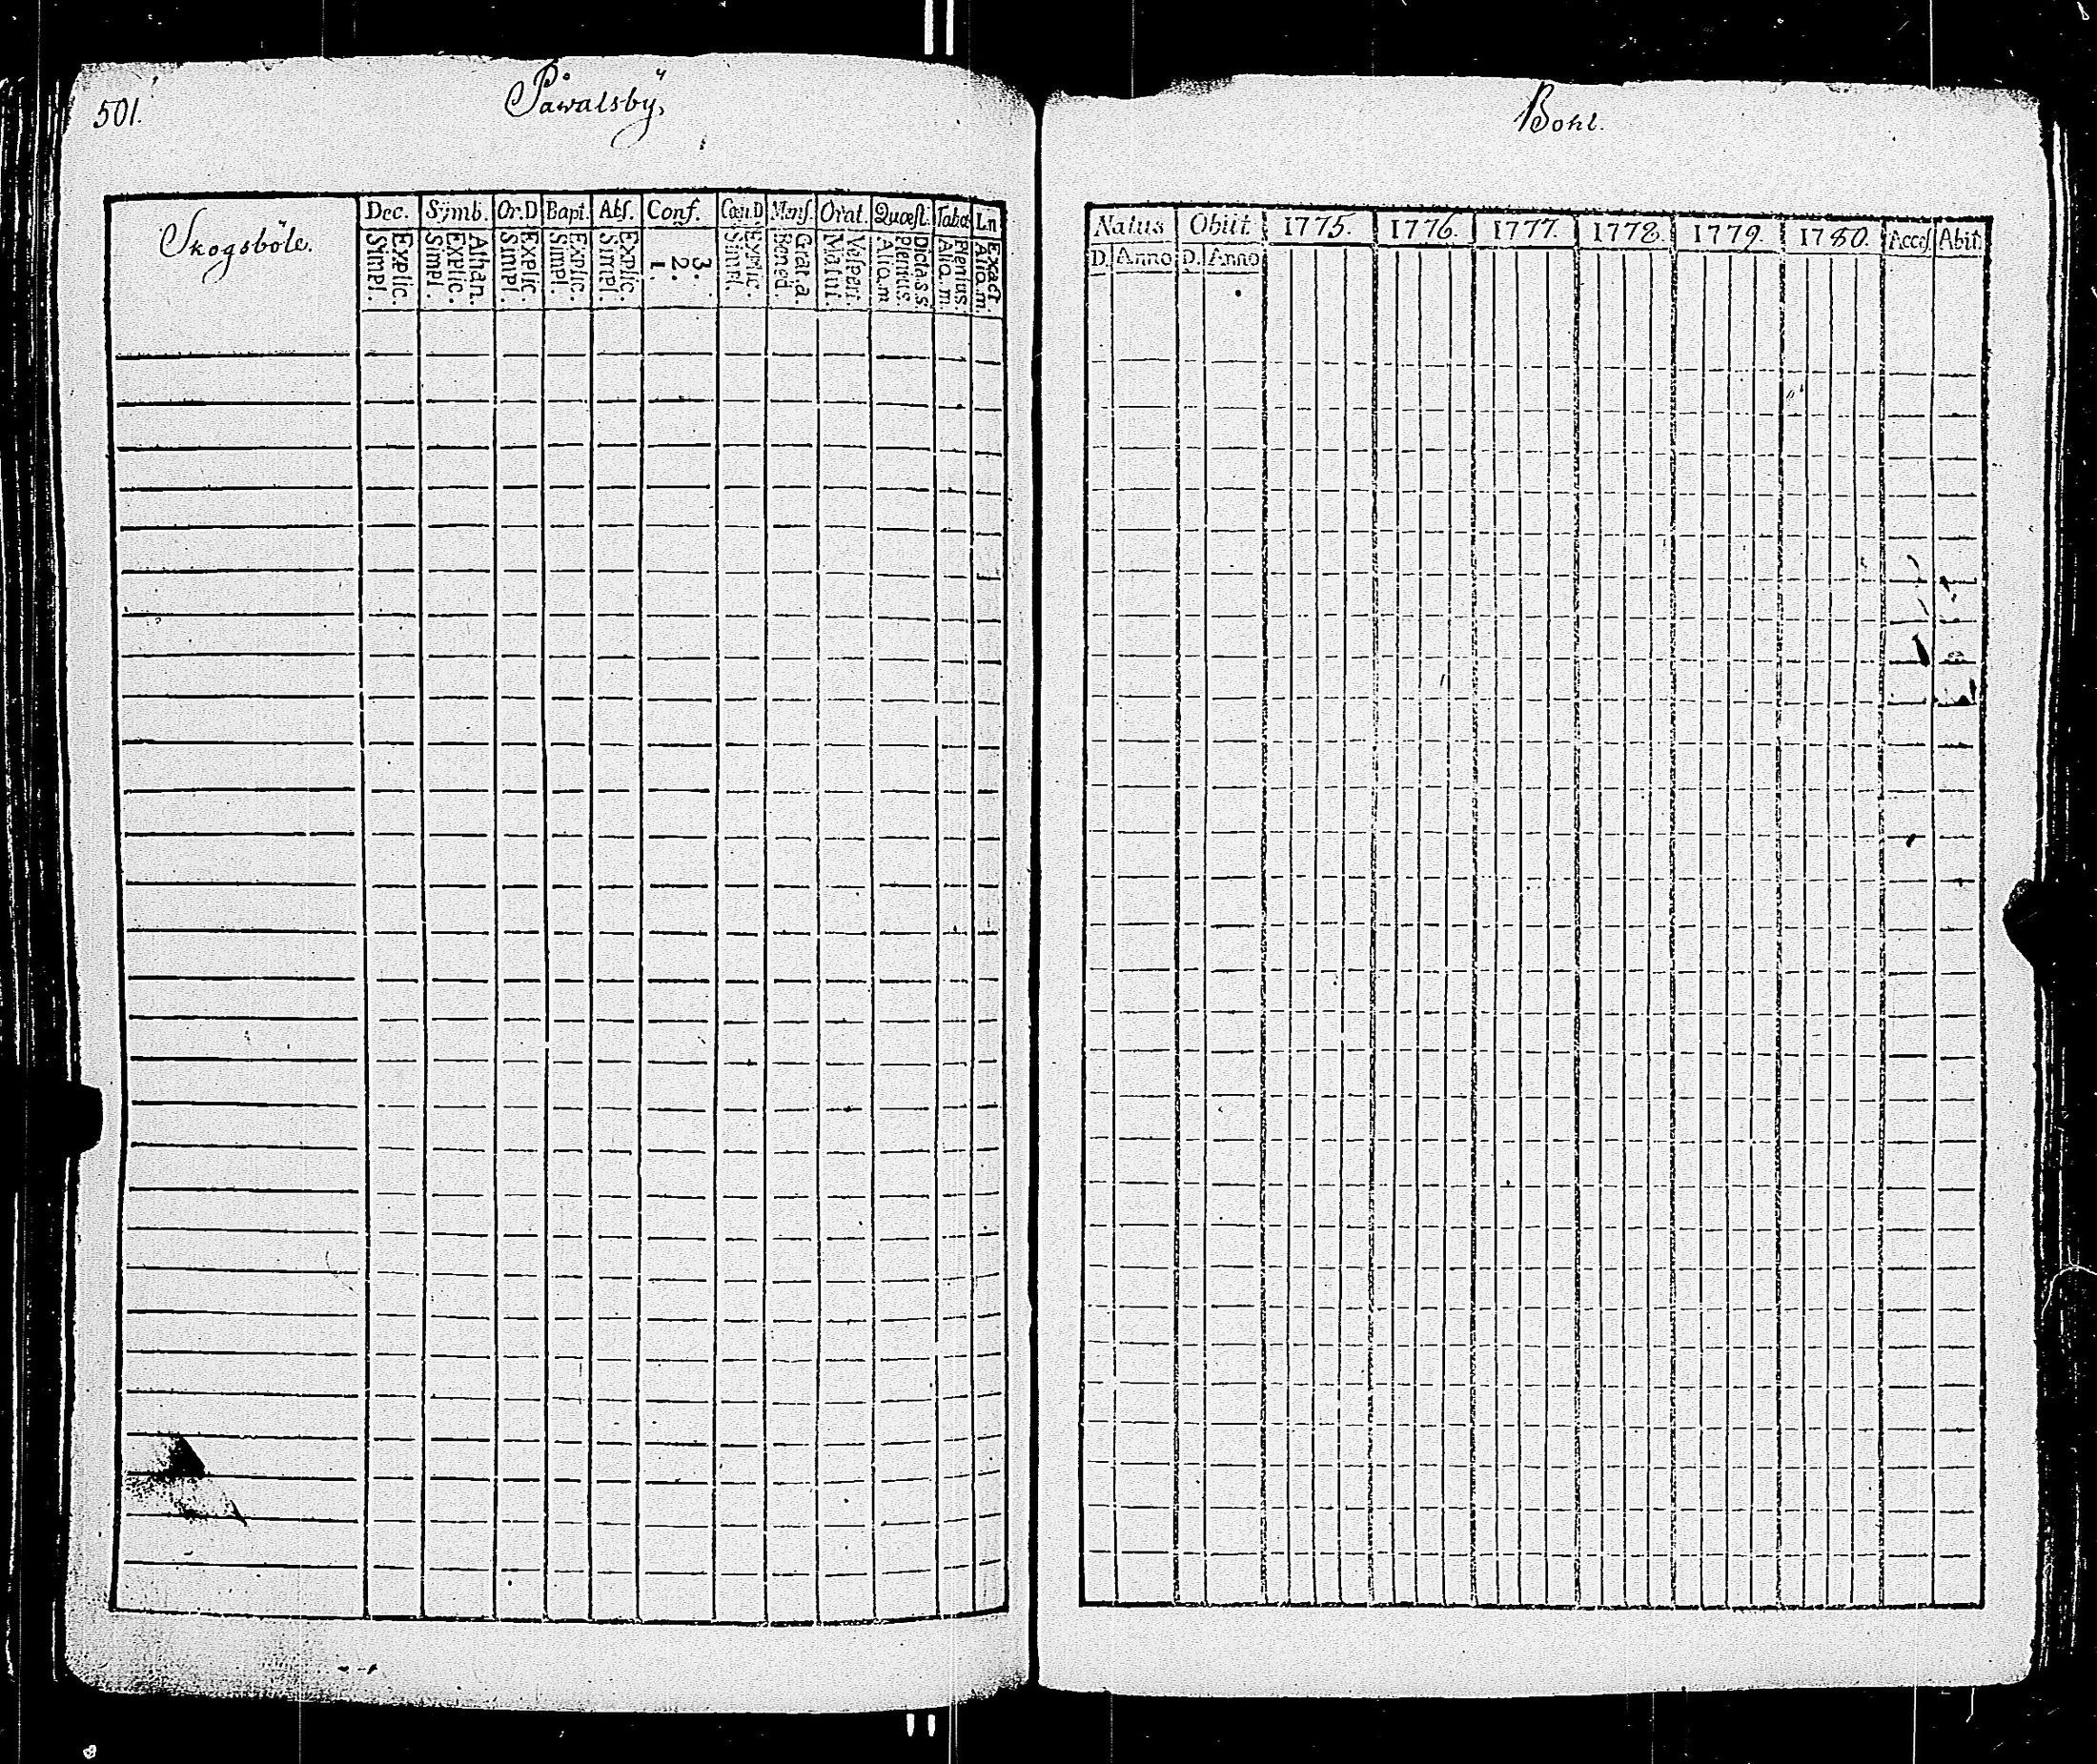 501.
Påwalsbÿ,
Bohl.
Skogsböle.
Dec. Sÿmb. Or.D Bapt. Abſ. Conf. Cœn.D Menſ. Orat. Quæſt. Tabæ Ln
Simpl. Explic. Simpl. Explic. Athan. Simpl. Explic. Simpl. Explic. Simpl. Explic. 1. 2. 3. Simpl. Explic. Bened. Grat.a. Matut. Veſpert. Aliq.m Plenius. Dicta.s.s. Aliq.m. Plenius. Aliq.m. Exact
Natus Obiit 1775. 1776. 1777. 1778. 1779. 1780. Acceſ. Abit.
D. Anno D. Anno